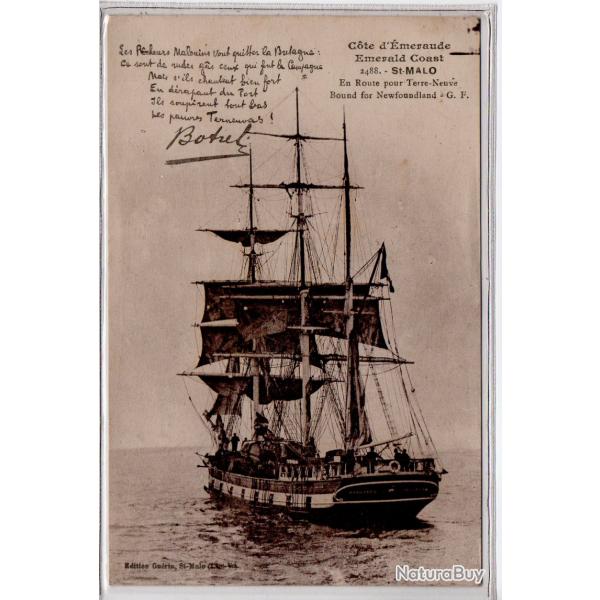 Les Pêcheurs Malouins vont quitter la Bretagne :
Ce sont de rudes gâs ceux qui font la Campagne
Mais s'ils chantent bien fort
En dérapant du Port
Ils soupirent tout bas
Les pauvres Terneuvas !
Botrel
Côte d'Émeraude
Emerald Coast
2488. - St-MALO
En Route pour Terre-Neuve
Bound for Newfoundland - G. F.
Edition Guérin, St-Malo
NaturaBuy